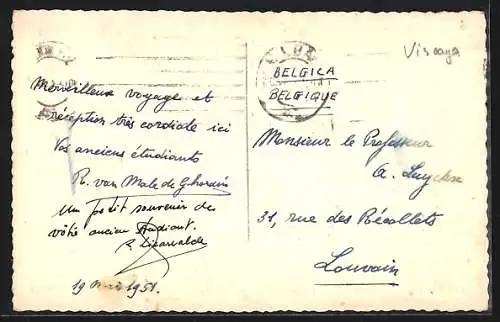 Viscaya
BELGICA
BELGIQUE
Merveilleux voyage et
réception très cordiale ici
Vos anciens étudiants
R. van Male de Ghorain
Un petit souvenir de
vôtre ancien étudiant.
19 mai 1951.
Monsieur le Professeur
A. Luyckx
31, rue des Récollets
Louvain